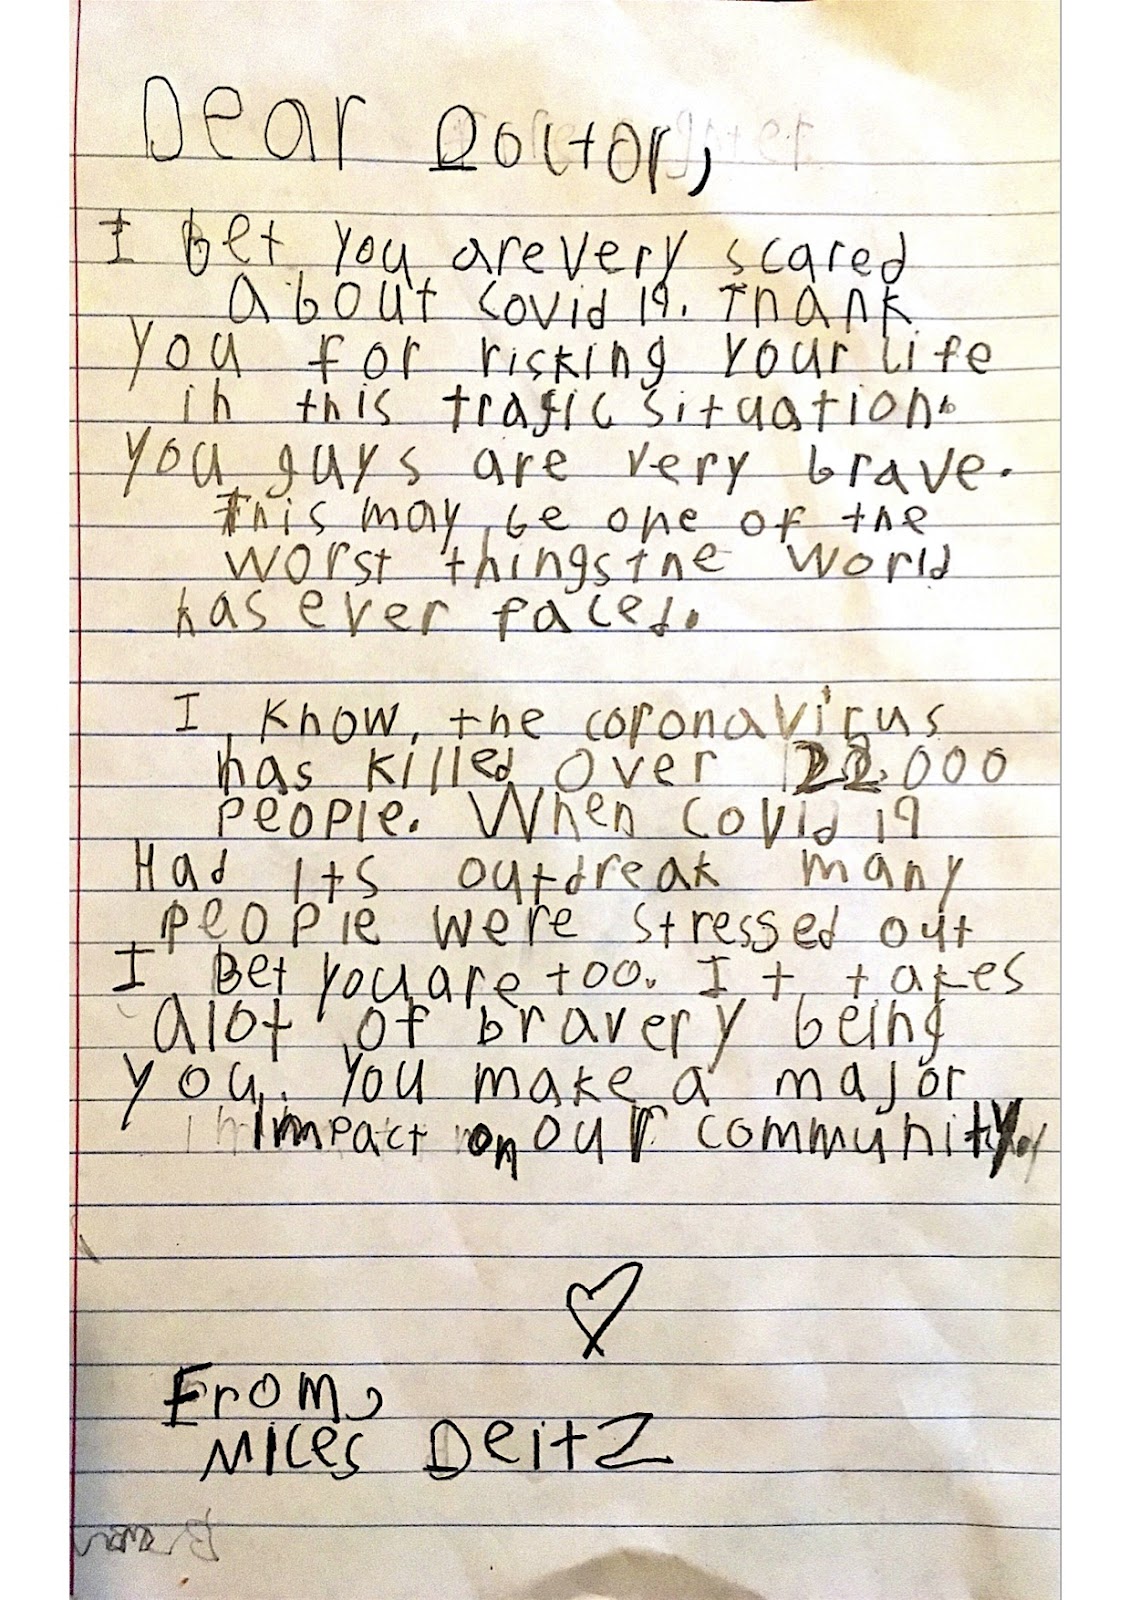 Dear Doctor,
I bet you are very scared
about covid 19. Thank
you for risking your life
in this tragic situation.
you guys are very brave.
This may be one of the
worst things the world
has ever faced.
I know, the coronavirus
has killed over 22,000
people. When covid 19
Had its outdreak many
people were stressed out
I Bet you are too. It takes
alot of bravery being
you. You make a major
impact on our community.
From,
Miles Deitz